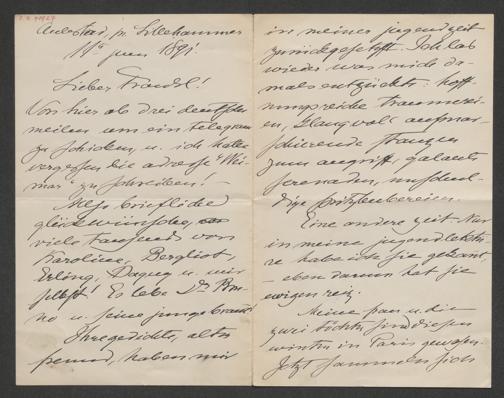 Aulestad, pr Lillehammer
11te juni 1891.
Lieber Freund!
Von hier als drei deutschen
meilen um ein telegram
zu schicken, u. ich hatte
vergessen die adresse "Wei-
mar" zu schreiben! –
Also briefliche
glückwünsche,
viele tausend von
Karoline, Bergliot,
Erling, Dagny u. mir
selbst! Es lebe Dr
u. seine junge braut!
Ihre gedichte, alter
freund, haben mir
in meiner jugendzeit
zurückgesetzt. Ich las
wieder was mich da-
mals entzückte: hoff-
nungsreiche traumerei-
en, klangvoll aufmar-
schierende
zum angriff, galante
serenaden, unschul-
dige
Eine andere zeit. Nur
in meine jugend lektü-
re habe ich sie gekannt,
– eben darum hat sie
ewigen reiz.
Meine frau u. die
zwei töchter sind diesen
winter in Paris gewesen.
Jetzt sammeln sich